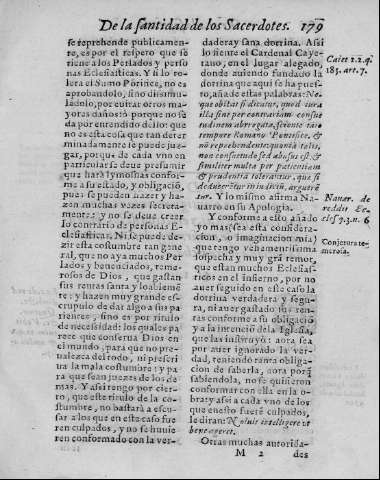 De la santidad de los Sacerdotes. 179
se reprehende publicamente,
es por el respeto que se
tiene a los Perlados y perso
nas Eclesiasticas. Y si lo to-
lera el Sumo Pótifice, no es
aprobandolo, sino dissimu-
landolo, por euitar otros ma
yores daños; ò porque no se
da por entendido del; or que
no es esta cosa que tan deter
minadamente se puede juz-
gar, porque de cada vno en
particular se deue presumir
que harà lymosnas confor-
me a su estado, y obligació,
pues se pueden hazer y ha-
zen muchas vezes secreta-
mente: y no se deue creer
lo contrario de personas E-
clesiasticas. Ni se puede de-
zir esta costumbre tan gene
ral, que no aya muchos Per
lados y beneficiados, teme-
rosos de Dios, que gastan
sus rentas santa y loablemé
te: y hazen muy grande es-
crupulo de dar algo a sus pa
rientes, sino es por titulo
de necesidad: los quales pa
rece que conserua Dios en
el mundo, para que no pre-
ualezca del todo, ni prescri
ua la mala costumbre: y pa
ra que sean juezes de los de
mas. Y assi tengo por cier-
ro, que este titulo de la co-
stumbre, no bastarà a escu-
sar a los que en esto fue
ren culpados, y no se huuie
ren conformado con la ver-
dadera y sana dotrina. Assi
lo siente el Cardenal Caye-
tano, en el lugar alegado,
donde auiendo fundado la
dotrina que aqui se ha pues-
to, añade estas palabras: Ne-
que obstat si dicatur, quod iura
illa sint per contrariam consue
tudinem abrogata, sciente nostri
tempore Romano Pontifice, &
nõ reprehendente; quonia talis,
non consuetudo sed abusus est: &
similiter multa per patientiam
& prudentia tolerantur, que si
deducerétur in iudiciũ, arguerẽ
tur. Y lo mismo afirma Na-
uarro en su Apologia.
Y conforme a esto añado
yo mas, (sea esta considera-
cion, o imaginacion mia)
que tengo vehementissima
sospecha y muy grã temor,
que estan muchos Eclesias-
ticos en el infierno, por no
auer seguido en este caso la
dotrina verdadera y segu-
ra, ni auer gastado sus ren-
tas conforme a su obligació
y a la intenciõ de la Iglesia,
que las instituyò: aora sea
por auer ignorado la ver-
dad, teniendo tanta obliga-
cion de saberla, aora porq̃
sabiendola, no se quisieron
conformar con ella en la o-
bra: y assi a cada vno de los q̃
en esto fueré culpados,
le diran: Noluit intelligere vt
bene ageret.
Otras muchas autorida-
M 2 des
Caiet 2.2.q.
185. art. 7.
Nauar. de
reddit. Ec-
cles. q.3.n. 6
Conjetura te-
merosa.